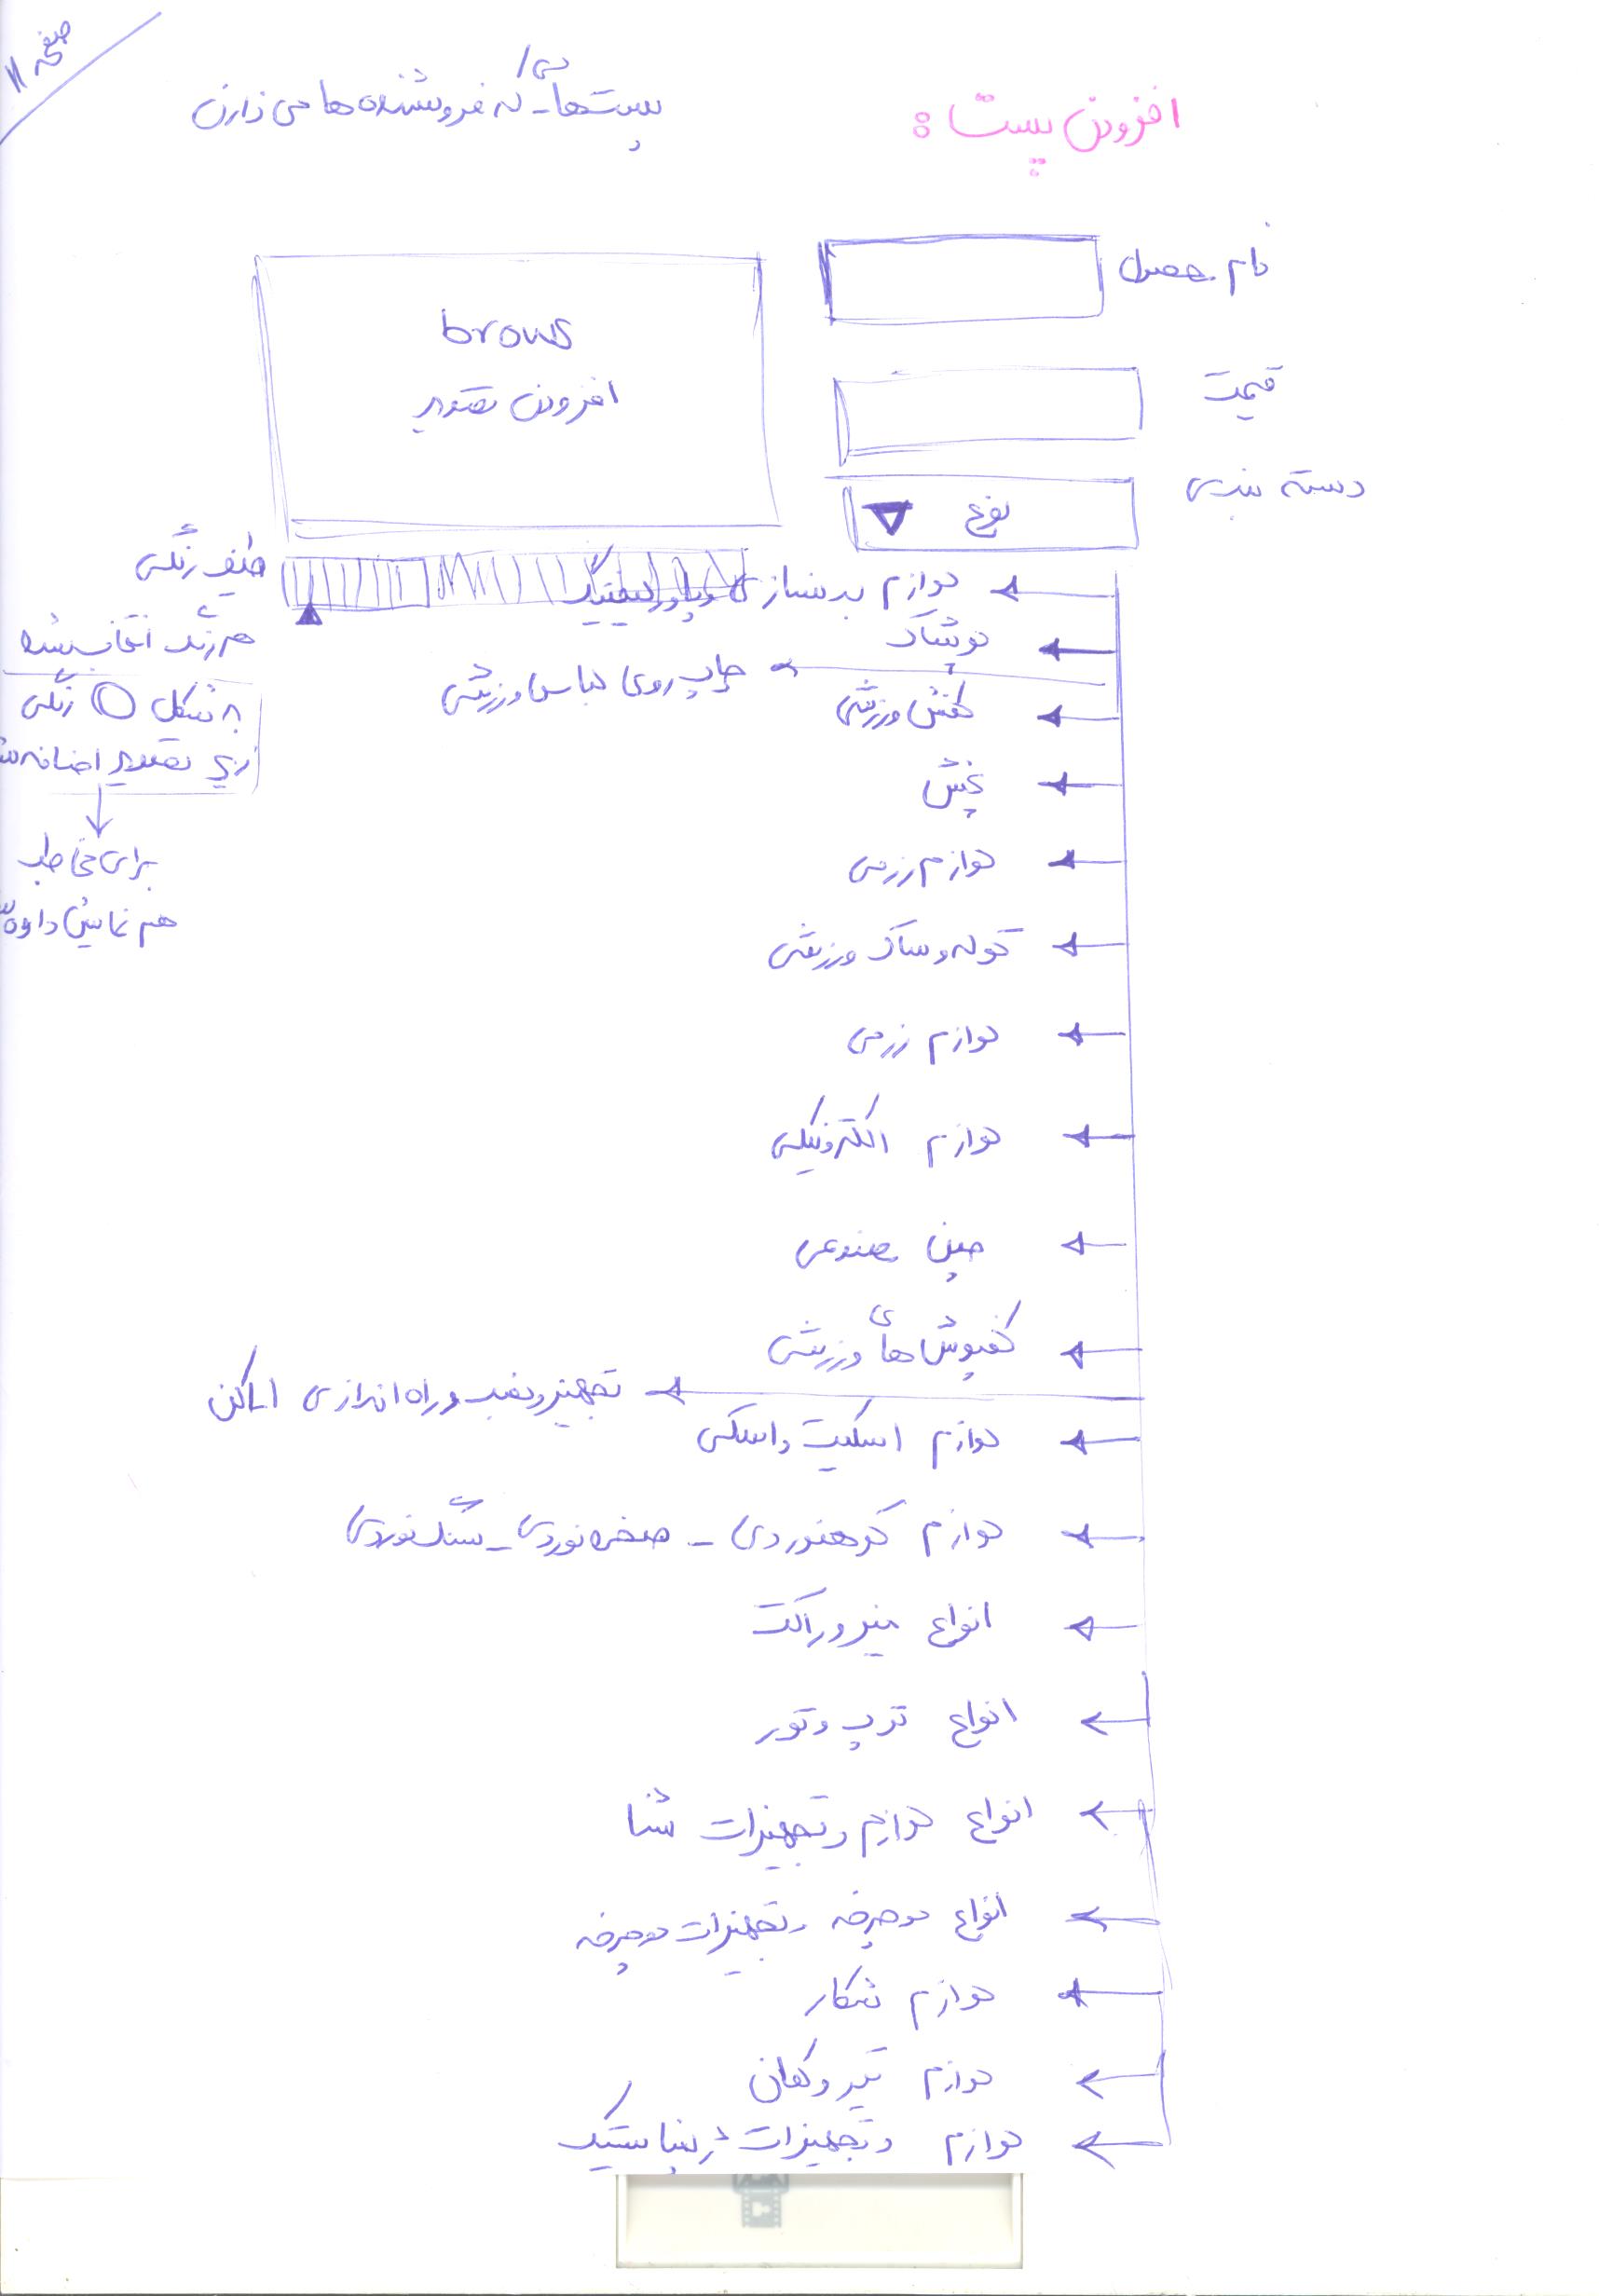 صفحه ۱۱
افزودن پست :
پست‌هایی که فروشنده ها می ذارن
نام محصول
قیمت
دسته بندی
نوع
brows
افزودن تصویر
طیف رنگی
هر رنگ انتخاب شده
به شکل رنگی
زیر تصویر اضافه
برای مخاطب
هم نمایش داده
لوازم بدنسازی و پاورلیفتینگ
پوشاک
چاپ روی لباس ورزشی
کفش ورزشی
پخش
لوازم رزمی
کوله و ساک ورزشی
لوازم رزمی
لوازم الکترونیکی
چمن مصنوعی
کفپوش های ورزشی
تجهیز و نصب و راه اندازی اماکن
لوازم اسکیت و اسکی
لوازم کوهنوردی - صخره نوردی - سنگ نوردی
انواع میز و راکت
انواع توپ و تور
انواع لوازم و تجهیزات شنا
انواع دوچرخه و تجهیزات دوچرخه
لوازم شکار
لوازم تیر و کمان
لوازم و تجهیزات ژیمناستیک